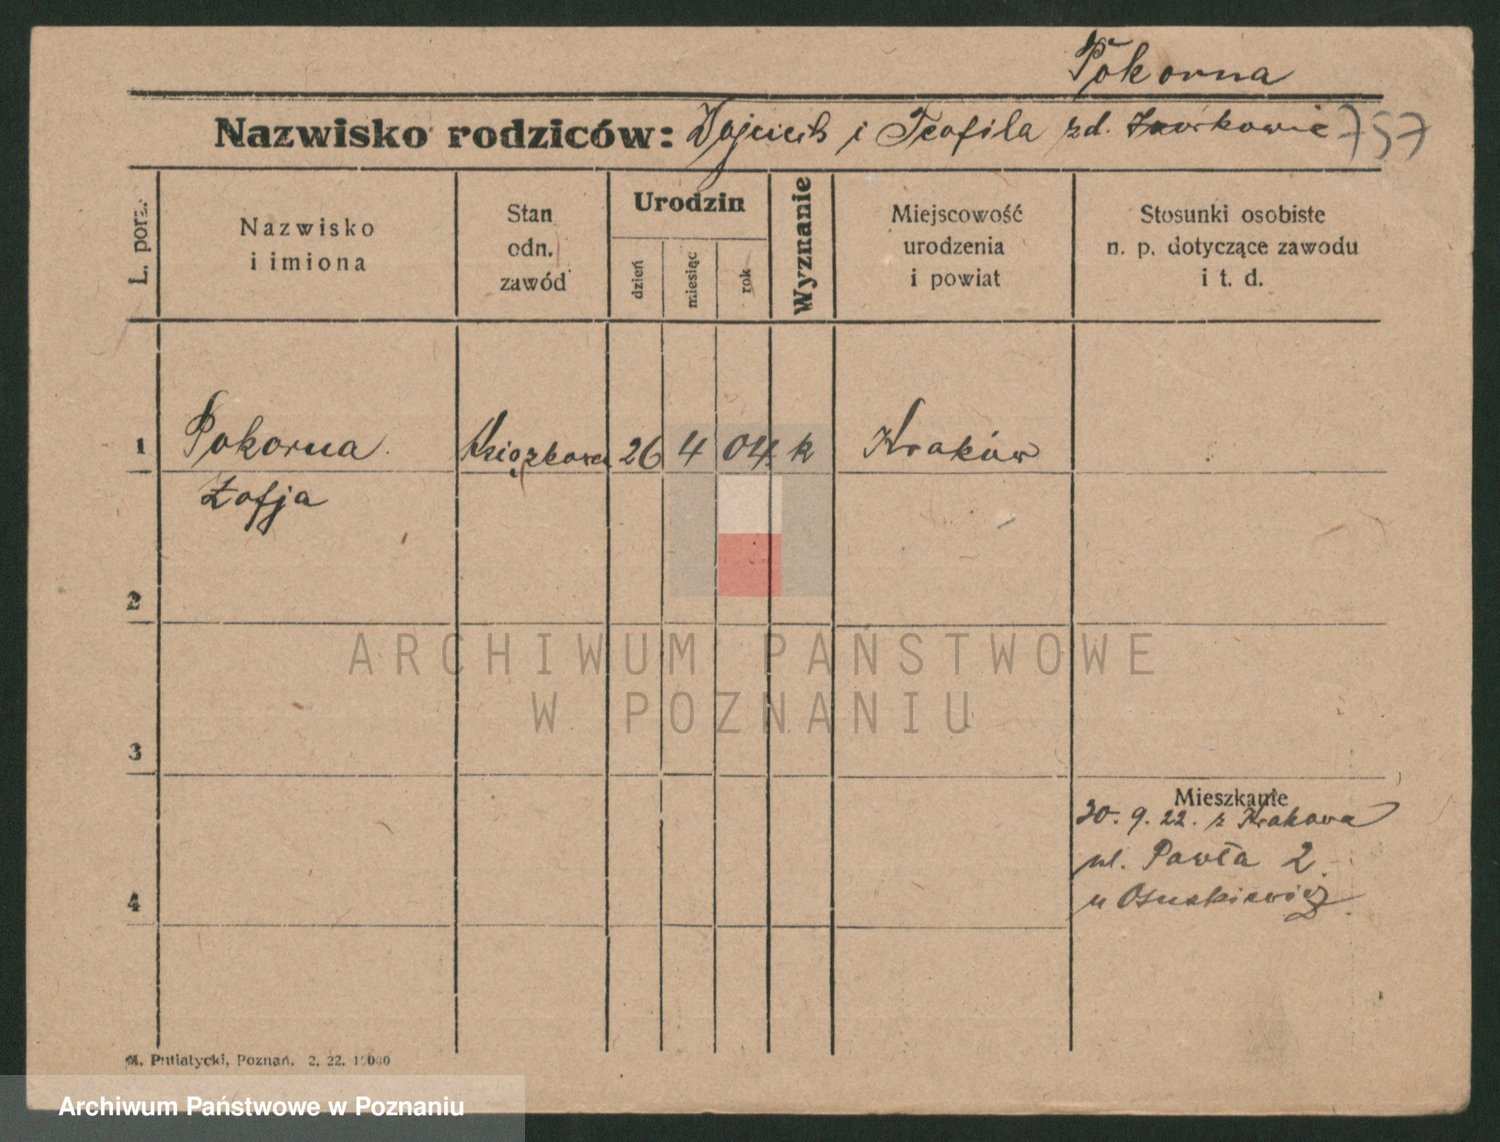 Pokorna
Nazwisko rodziców: Wojciech i Teofila zd. 757
L. porz.
Nazwisko
i imiona
Stan
odn.
zawód
Urodzin
dzień
miesiąc
rok
Wyznanie
Miejscowość
urodzenia
i powiat
Stosunki osobiste
n. p. dotyczące zawodu
i t. d.
1 Pokorna Książkowa 26 4 04 k Kraków
Zofja
2
ARCHIWUM PAŃSTWOWE
W POZNANIU
3
Mieszkanie
30. 9. 22. z Krakowa
ul. Pawła 2
4 u
Putiatycki, Poznań. 2. 22.
Archiwum Państwowe w Poznaniu